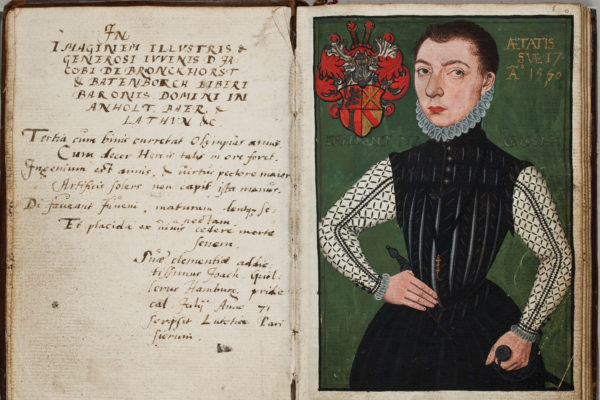 IN
IMAGINEM ILLUSTRIS &
GENEROSI IVVENIS D JA-
COBI DE BRONCKHORST
& BATENBORCH LIBERI
BARONIS DOMINI IN
ANHOLT, BAER, &
LATHUN &c
Tertia cum binis currebat Olympias annis,
Cum decor Herois talis in ore foret.
Ingenium est annis, & virtus pectore maior
Artificis solers non capit ista manus.
Di faveant juveni, maturam dentque se-
nectam
Et placida ex nimis cedere morte
senem.
Suae clementiae addic-
tissimus Joach.
Hamburg. pridie
cal. Julij Anno 71
scripsit Lutetiae Pari
siorum.
ÆTATIS
SVÆ 17
Aº 1570